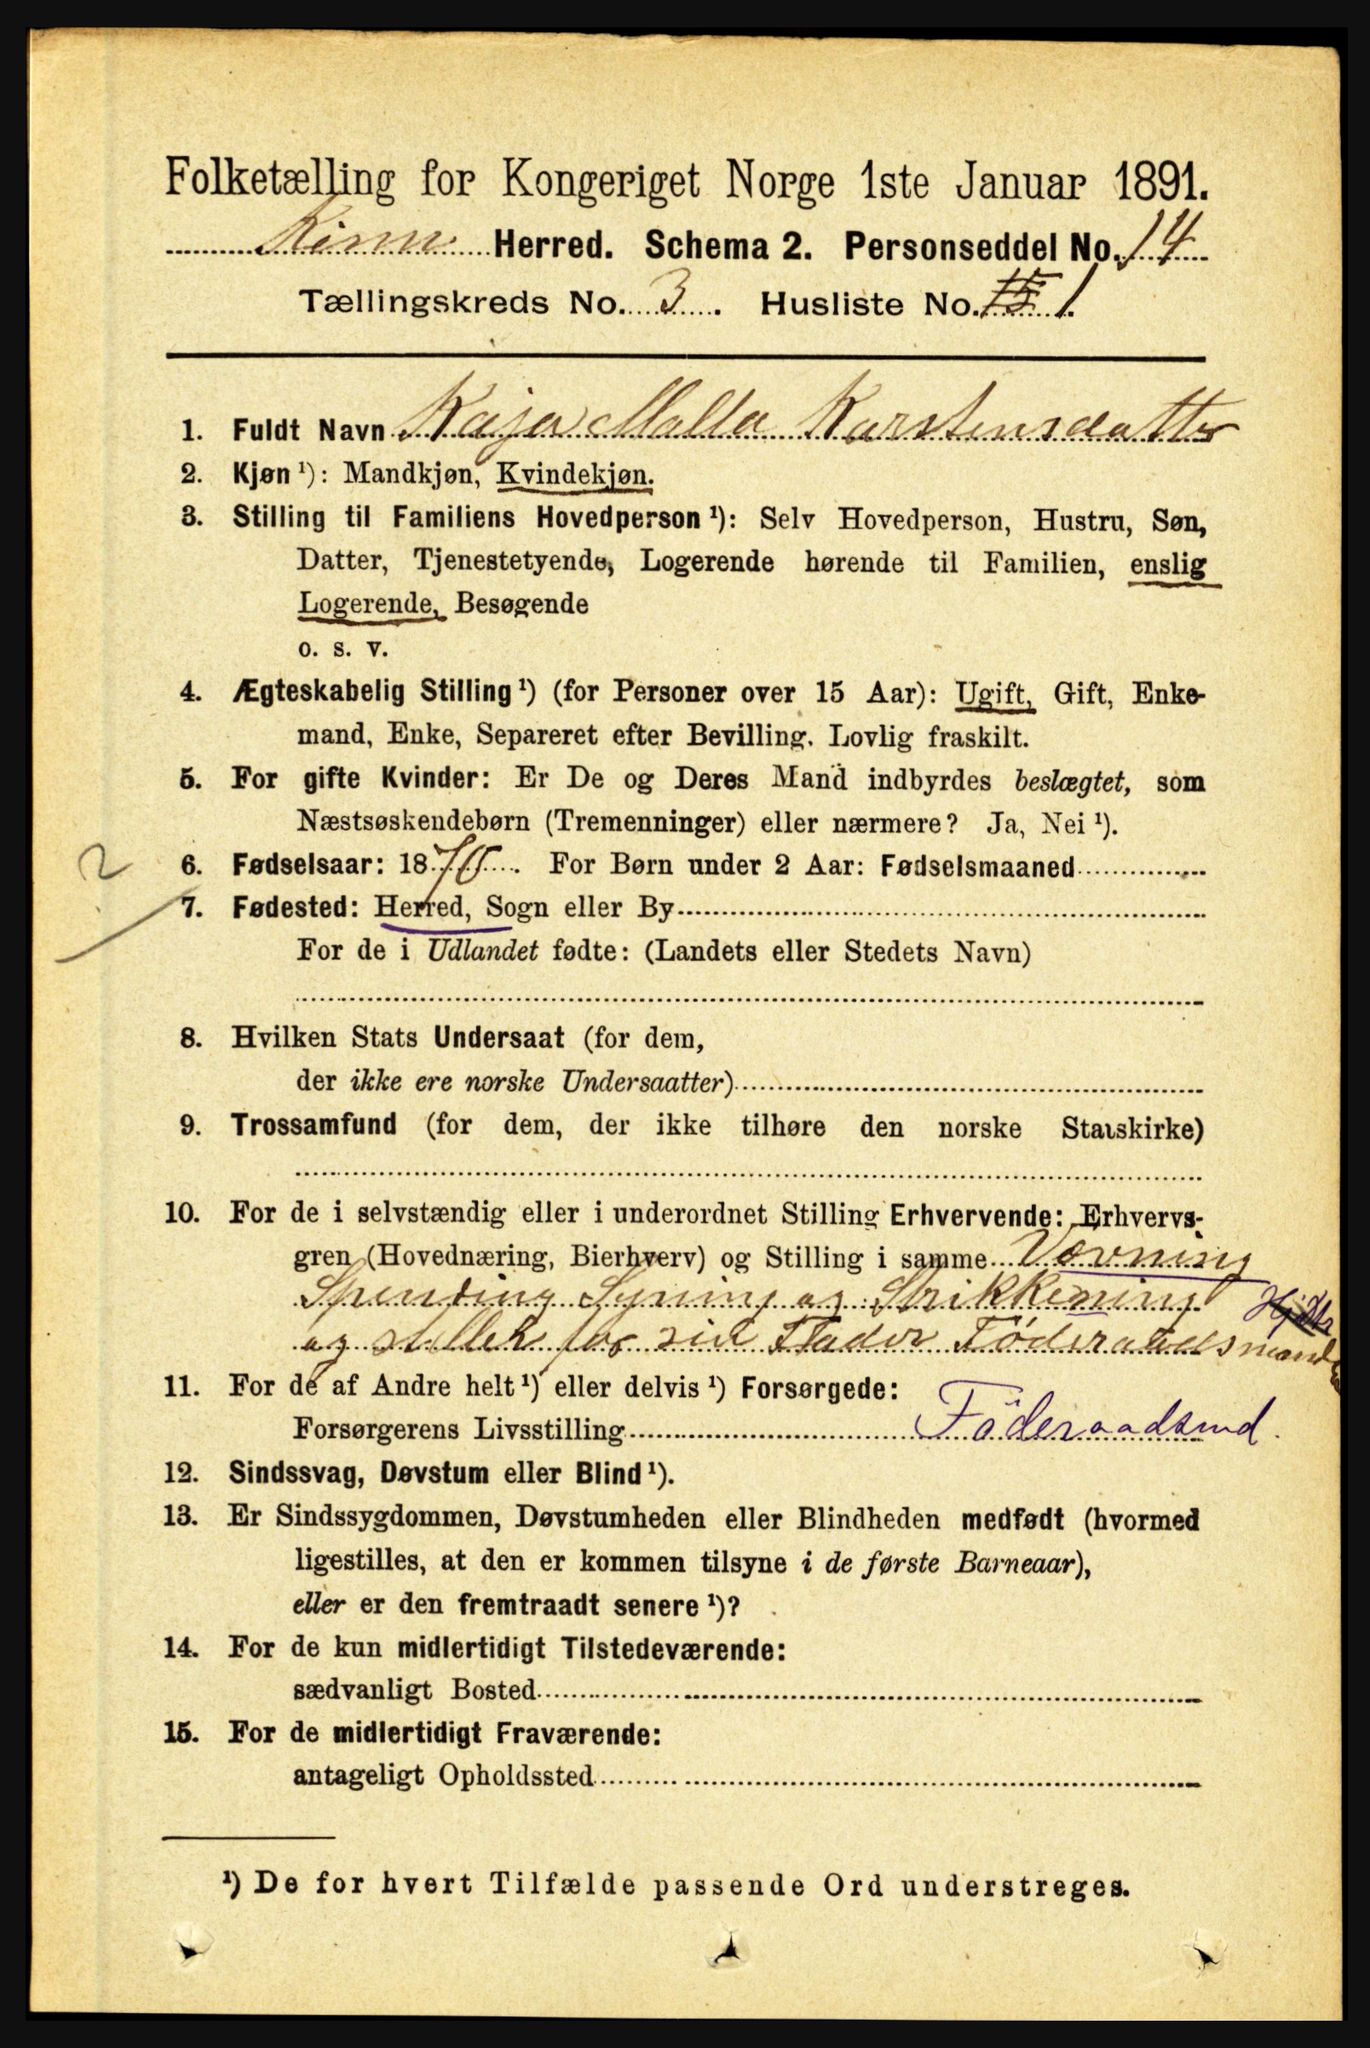 Folketælling for Kongeriget Norge 1ste Januar 1891.
Kinn Herred. Schema 2. Personseddel No. 14
Tællingskreds No. 3. Husliste No. 15 1.
1. Fuldt Navn Kaja Malla Karstensdatter
2. Kjøn ¹): Mandkjøn, Kvindekjøn.
3. Stilling til Familiens Hovedperson ¹): Selv Hovedperson, Hustru, Søn,
Datter, Tjenestetyende, Logerende hørende til Familien, enslig
Logerende, Besøgende
o. s. v.
4. Ægteskabelig Stilling ¹) (for Personer over 15 Aar): Ugift, Gift, Enke-
mand, Enke, Separeret efter Bevilling. Lovlig fraskilt.
5. For gifte Kvinder: Er De og Deres Mand indbyrdes beslægtet, som
Næstsøskendebørn (Tremenninger) eller nærmere? Ja, Nei ¹).
2
6. Fødselsaar: 1870. For Børn under 2 Aar: Fødselsmaaned
7. Fødested: Herred, Sogn eller By
For de i Udlandet fødte: (Landets eller Stedets Navn)
8. Hvilken Stats Undersaat (for dem,
der ikke ere norske Undersaatter)
9. Trossamfund (for dem, der ikke tilhøre den norske Statskirke)
10. For de i selvstændig eller i underordnet Stilling Erhvervende: Erhvervs-
gren (Hovednæring, Bierhverv) og Stilling i samme Vævning
Spinding Syning og Strikkening
og steller for sin Fader Föderaadsmand
11. For de af Andre helt ¹) eller delvis ¹) Forsørgede:
Forsørgerens Livsstilling Föderaadsmd.
12. Sindssvag, Døvstum eller Blind ¹).
13. Er Sindssygdommen, Døvstumheden eller Blindheden medfødt (hvormed
ligestilles, at den er kommen tilsyne i de første Barneaar),
eller er den fremtraadt senere ¹)?
14. For de kun midlertidigt Tilstedeværende:
sædvanligt Bosted
15. For de midlertidigt Fraværende:
antageligt Opholdssted
¹) De for hvert Tilfælde passende Ord understreges.